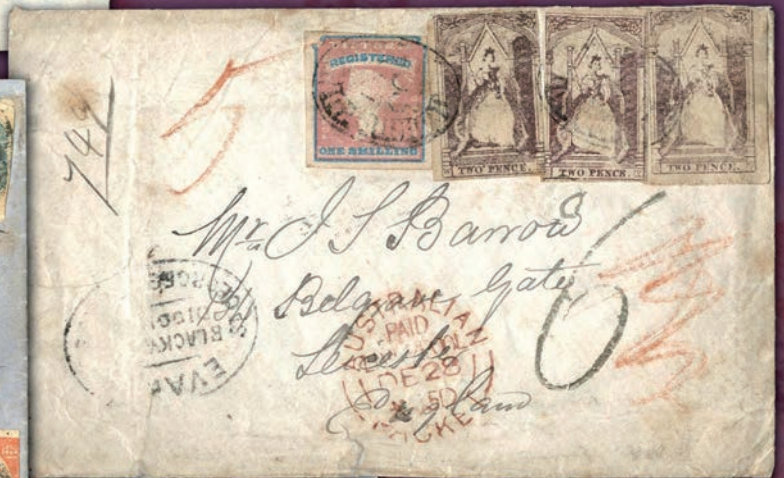 REGISTERED
ONE SHILLING
TWO PENCE.
TWO PENCE.
TWO PENCE.
5
Mr J S Barrow
Belgrave Gate
Leicester
England
6
AUSTRALIAN
PAID
LIVERPOOL
DE 28
PACKET
EVAN
BLACKW